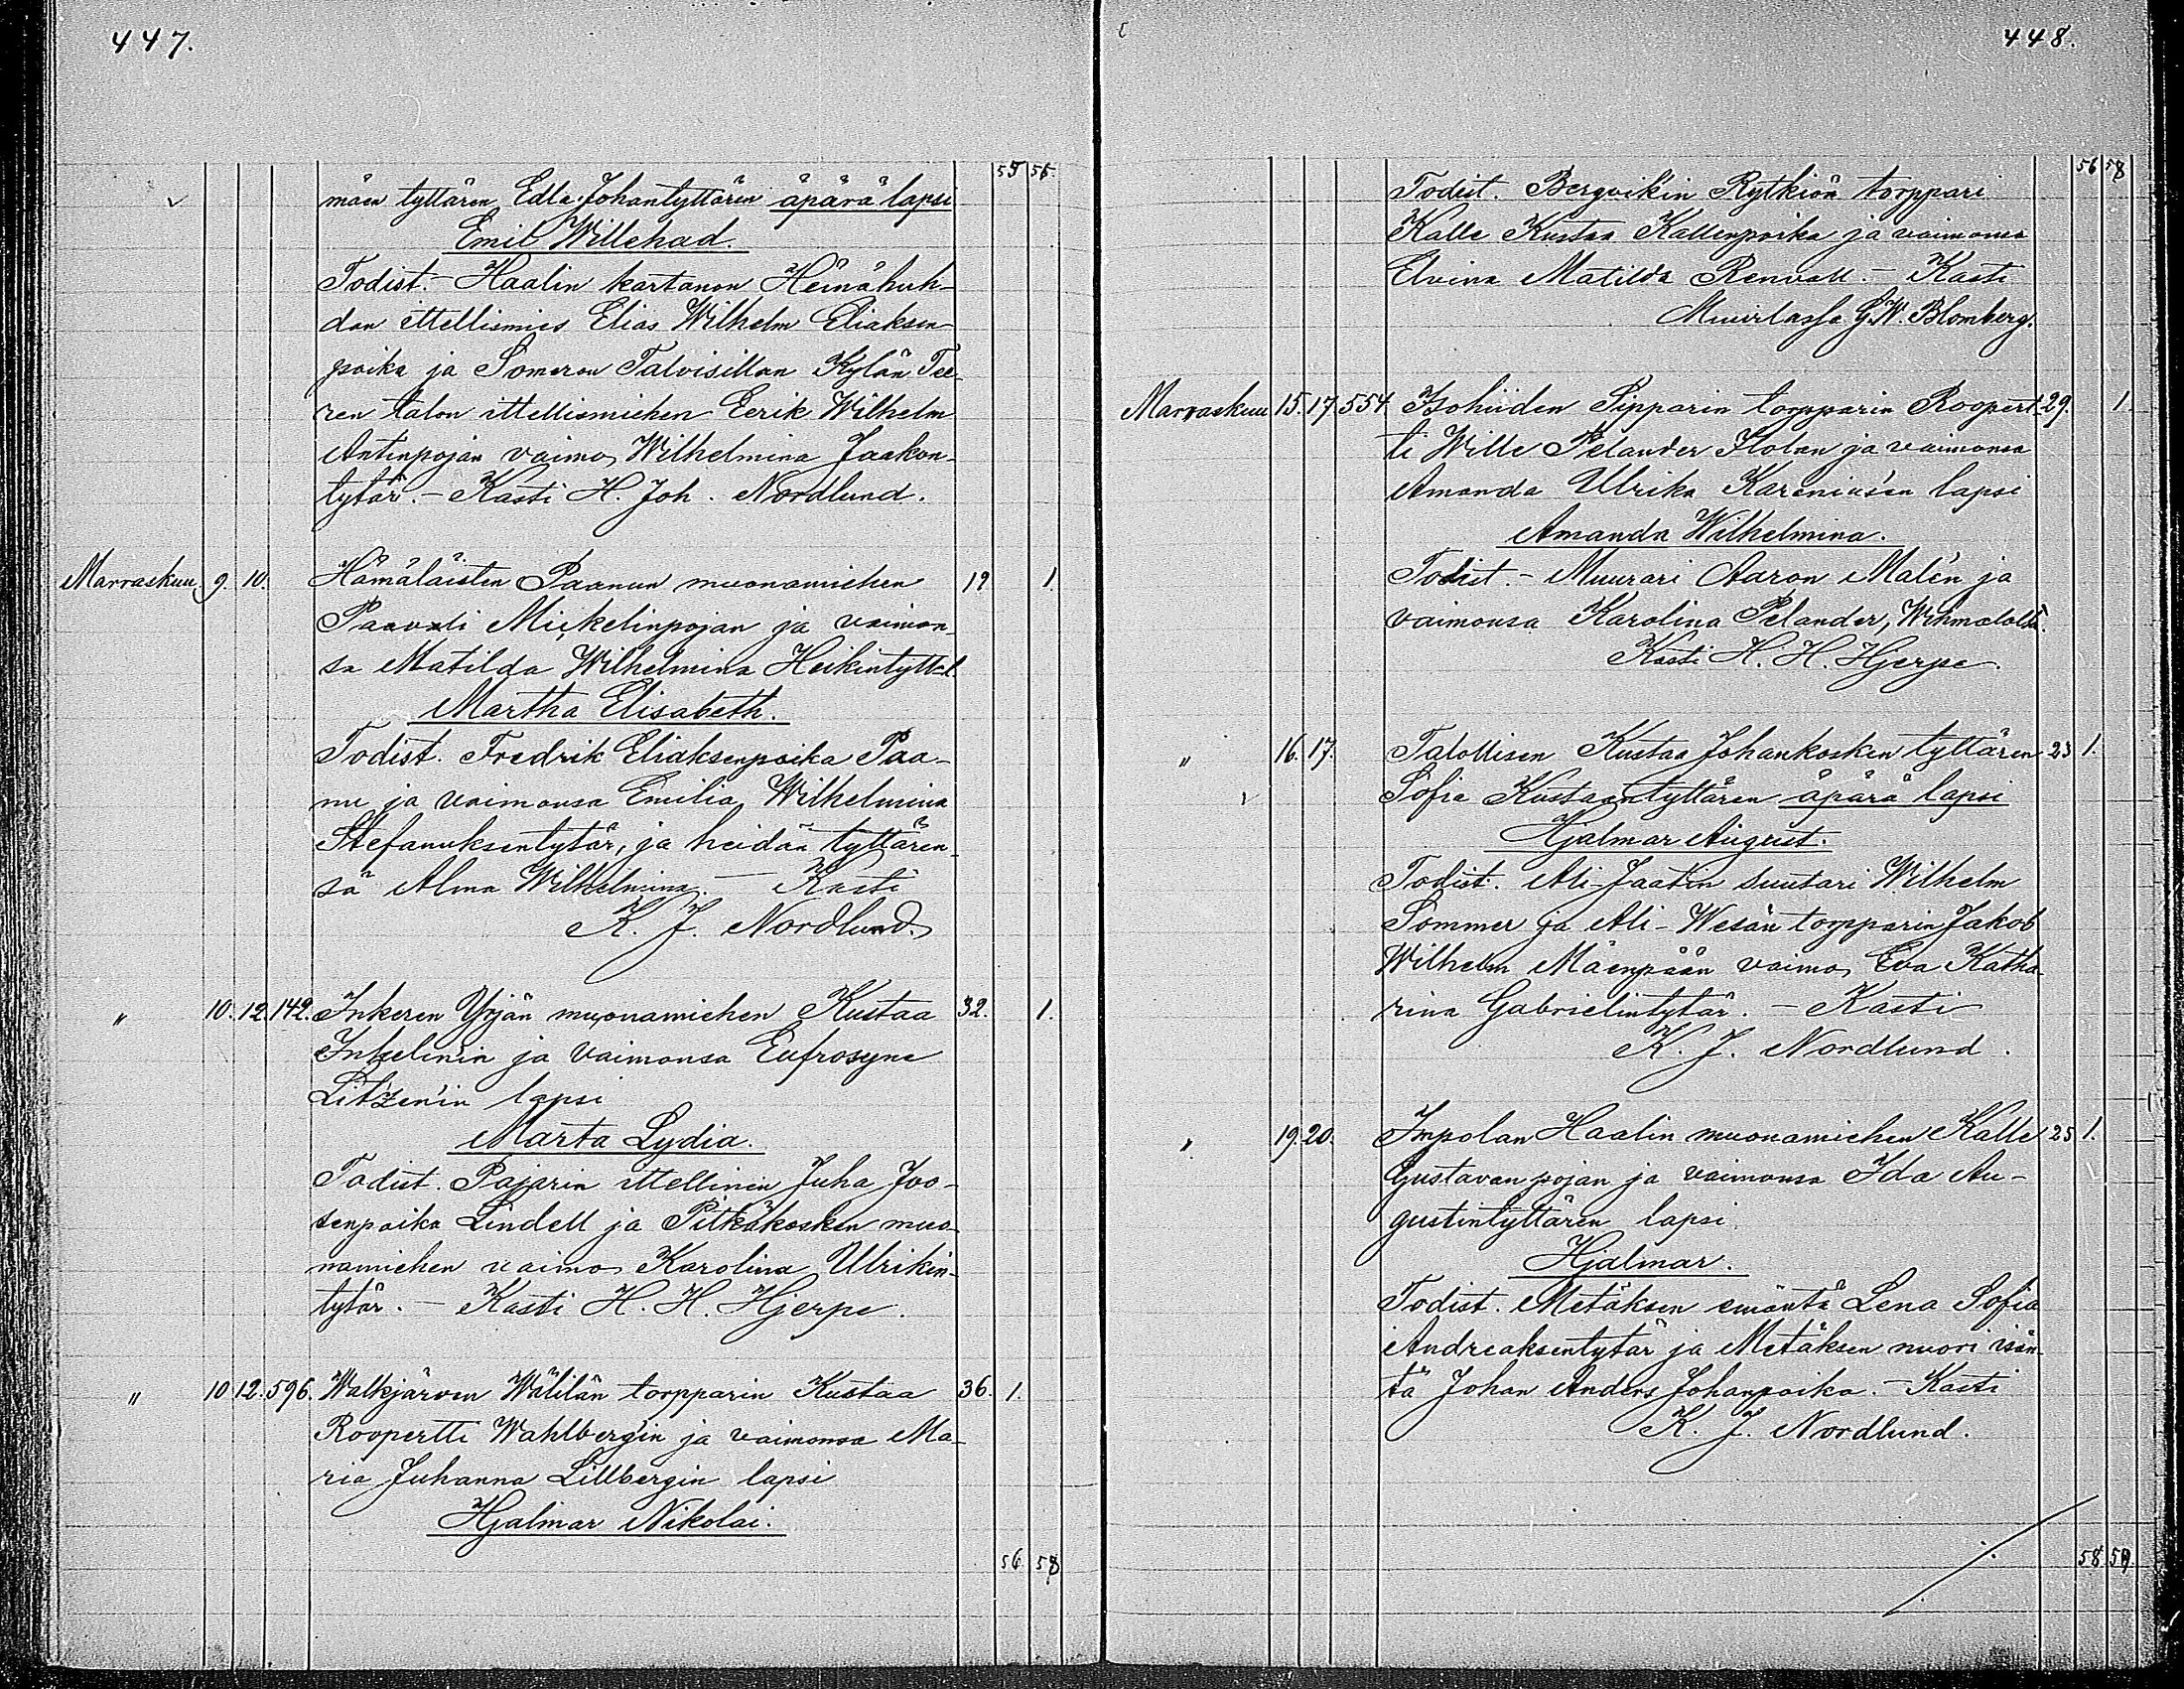 447.
55 56
mäen tyttären Edla Johantyttären äpärä lapsi
Emil Willehad.
Todist. - Haalin kartanon Heinähuh-
dan ittellismies Elias Wilhelm Eliaksen
poika ja Someron Talvisillan Kylän Tee-
ren talon ittellismiehen Eerik Wilhelm
Antinpojan vaimo Wilhelmina Jaakon-
tytär. - Kasti H. Joh. Nordlund.
Marraskuu 9. 10. Hämäläisten Paanun muonamiehen 19 1.
Paavali Mickelinpojan ja vaimon-
sa Matilda Wilhelmina Heikintytt. l.
Martha Elisabeth.
Todist. Fredrik Eliaksenpoika Paa-
nu ja vaimonsa Emilia Wilhelmina
Stefanuksentytär, ja heidän tyttären-
sä Alma Wilhelmina. - Kasti
K. J. Nordlund.
" 10. 12. 142. Inkeren Yrjän muonamiehen Kustaa 32. 1.
Inkelinin ja vaimonsa Eufrosyne
Litzén'in lapsi
Marta Lydia.
Todist. Pajarin ittellinen Juha Joo-
senpoika Lindell ja Pitkäkosken muo-
namiehen vaimo Karolina Ulrikin-
tytär. - Kasti H. H. Hjerpe.
" 10 12. 596. Walkjärven Wälilän torpparin Kustaa 36. 1.
Roopertti Wahlbergin ja vaimonsa Ma-
ria Juhanna Lillbergin lapsi
Hjalmar Nikolai.
56. 58
448.
56 58
Todist. Bergvikin Rytkiön torppari
Kalle Kustaa Kallenpoika ja vaimonsa
Elvina Matilda Renvall. - Kasti
Muurlassa G. W. Blomberg.
Marraskuu 15. 17. 554 Isohiiden Sipparin torpparin Roopert- 29. 1.
ti Wille Pelander Ilolan ja vaimonsa
Amanda Ulrika Karenius'en lapsi
Amanda Wilhelmina.
Todist. - Muurari Aaron Malén ja
vaimonsa Karolina Pelander, Wihmalolta.
Kasti H. H. Hjerpe.
" 16. 17. Talollisen Kustaa Johankosken tyttären 23 1.
Sofia Kustaantyttären äpärä lapsi
Hjalmar August.
Todist. Ali-Jaatin suutari Wilhelm
Sommer ja Ali-Wesan torpparin Jakob
Wilhelm Mäenpään vaimo Eva Katha-
rina Gabrielintytär. - Kasti
K. J. Nordlund.
" 19. 20. Impolan Haalin muonamiehen Kalle 25 1.
Gustavan pojan ja vaimonsa Ida Au-
gustintyttären lapsi
Hjalmar.
Todist. Metäksen emäntä Lena Sofia
Andreaksentytär ja Metäksen nuori isän-
tä Johan Anders Johanpoika. - Kasti
K. J. Nordlund.
58 59.